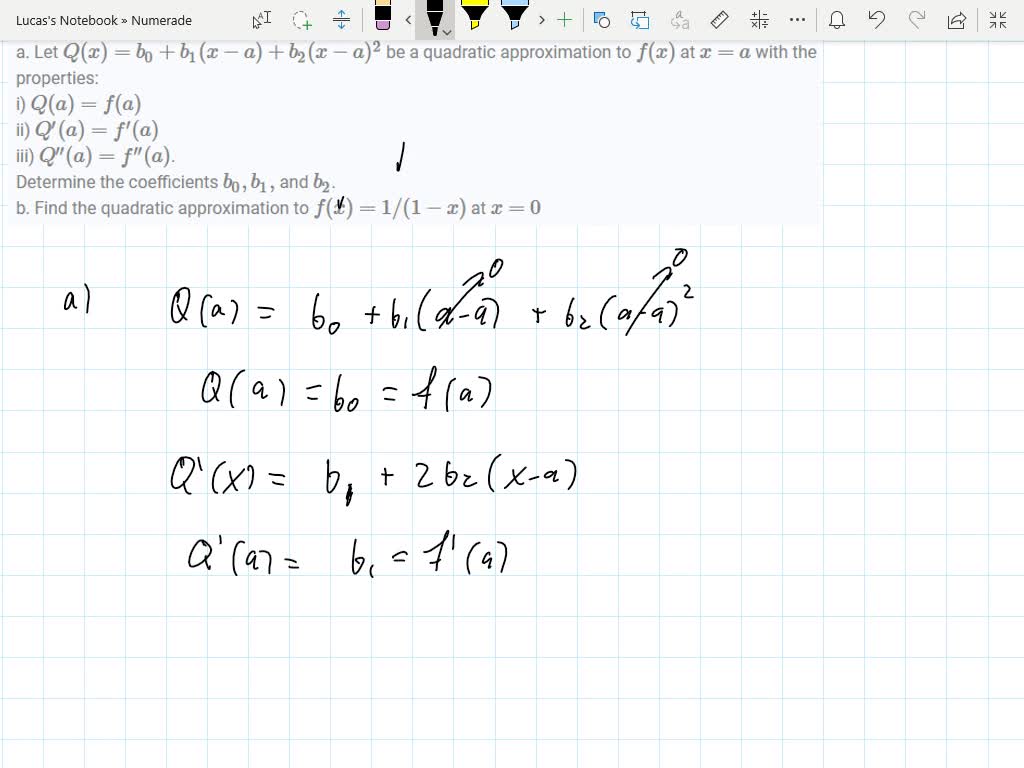 Lucas's Notebook » Numerade
a. Let Q(x) = b₀ + b₁(x − a) + b₂(x − a)² be a quadratic approximation to f(x) at x = a with the
properties:
i) Q(a) = f(a)
ii) Q′(a) = f′(a)
iii) Q″(a) = f″(a).
Determine the coefficients b₀, b₁, and b₂.
b. Find the quadratic approximation to f(x) = 1/(1 − x) at x = 0
a) Q(a) = b₀ + b₁(a-a)→0 + b₂(a-a)²→0
Q(a) = b₀ = f(a)
Q'(x) = b₁ + 2b₂(x-a)
Q'(a) = b₁ = f'(a)